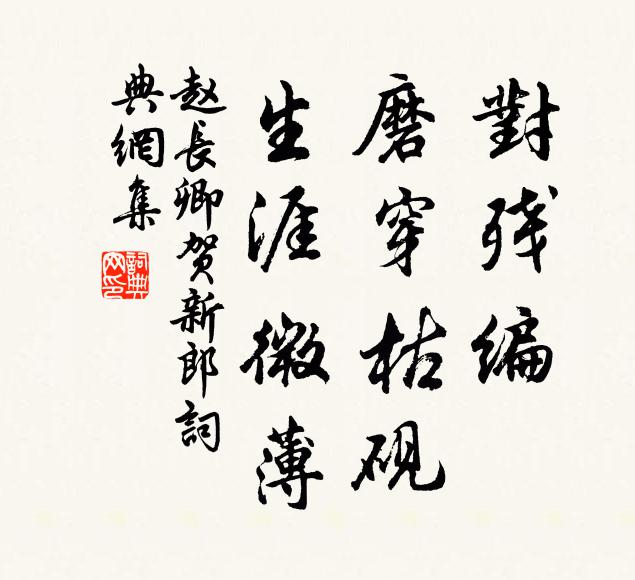 對残編
磨穿枯硯
生涯微薄
赵長卿贺新郎詞
典網集
詞典
网印